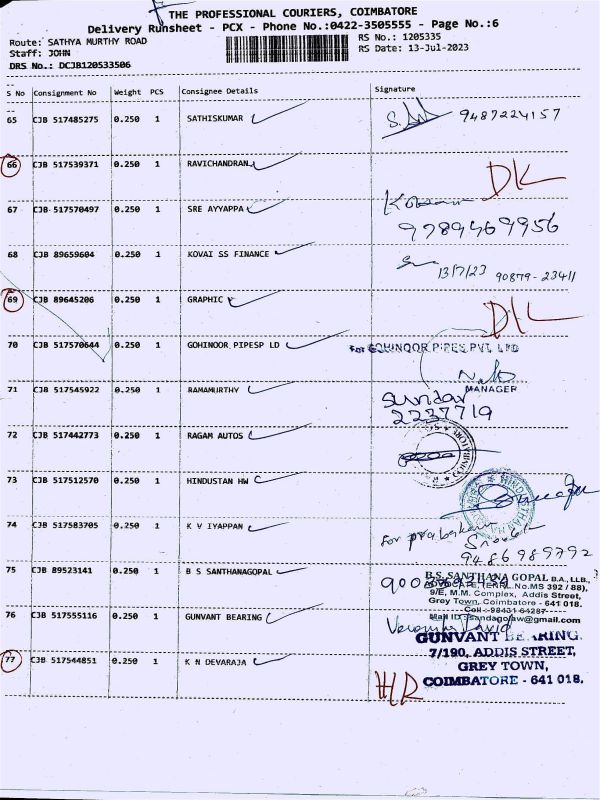 THE PROFESSIONAL COURIERS, COIMBATORE
Delivery Runsheet - PCX - Phone No.:0422-3505555 - Page No.:6
Route: SATHYA MURTHY ROAD
RS No.: 1205335
Staff: JOHN
RS Date: 13-Jul-2023
DRS No.: DCJB120533506
S No Consignment No Weight PCS Consignee Details Signature
65 CJB 517485275 0.250 1 SATHISKUMAR 9487224157
66 CJB 517539371 0.250 1 RAVICHANDRAN DL
67 CJB 517570497 0.250 1 SRE AYYAPPA
9789469956
68 CJB 89659604 0.250 1 KOVAI SS FINANCE
13/7/23 90879-23411
69 CJB 89645206 0.250 1 GRAPHIC DL
70 CJB 517570644 0.250 1 GOHINOOR PIPESP LD For GOHINOOR PIPES PVT. LTD
MANAGER
71 CJB 517545922 0.250 1 RAMAMURTHY Sundar
2237719
72 CJB 517442773 0.250 1 RAGAM AUTOS
73 CJB 517512570 0.250 1 HINDUSTAN HW
74 CJB 517583705 0.250 1 K V IYAPPAN For
9486989792
75 CJB 89523141 0.250 1 B S SANTHANAGOPAL B.S. SANTHANA GOPAL B.A., LL.B.,
No.MS 392 / 88),
9/E, M.M. Complex, Addis Street,
Grey Town, Coimbatore - 641 018.
Cell : 98431 64287
76 CJB 517555116 0.250 1 GUNVANT BEARING Mail ID : sandagolaw@gmail.com
GUNVANT BEARING
7/190, ADDIS STREET,
77 CJB 517544851 0.250 1 K N DEVARAJA GREY TOWN,
COIMBATORE - 641 018.
HR